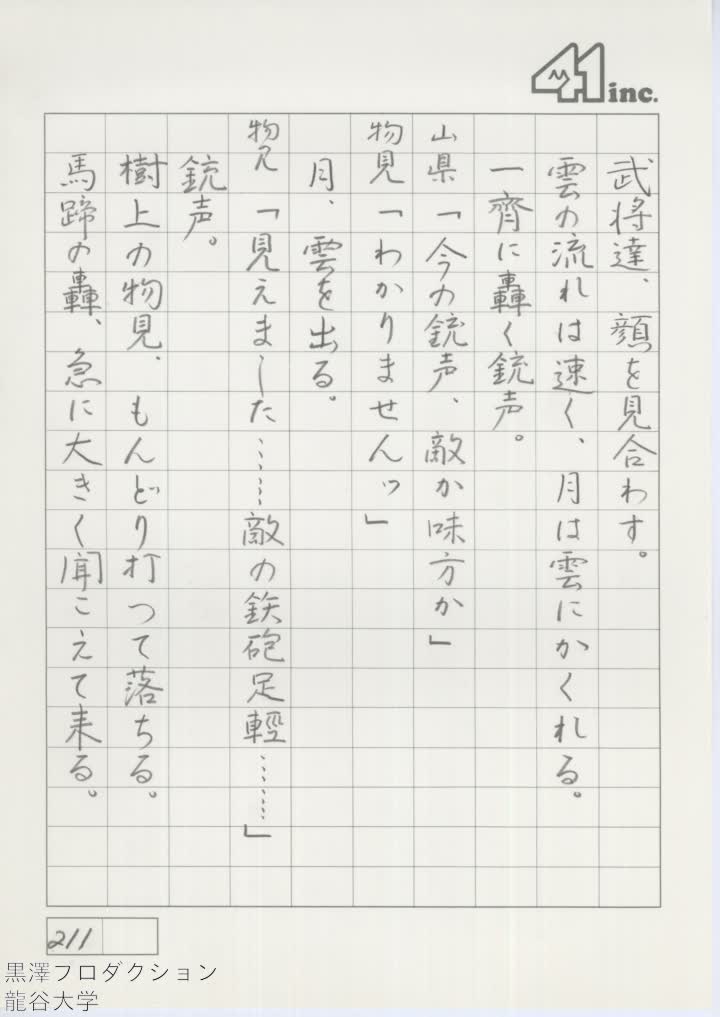 41 inc.
武将達、顔を見合わす。
雲の流れは速く、月は雲にかくれる。
一齊に轟く銃声。
山県「今の銃声、敵か味方か」
物見「わかりませんッ」
月、雲を出る。
物見「見えました……敵の鉄砲足輕……」
銃声。
樹上の物見、もんどり打つて落ちる。
馬蹄の轟、急に大きく聞こえて来る。
211
黒澤フロダクション
龍谷大学